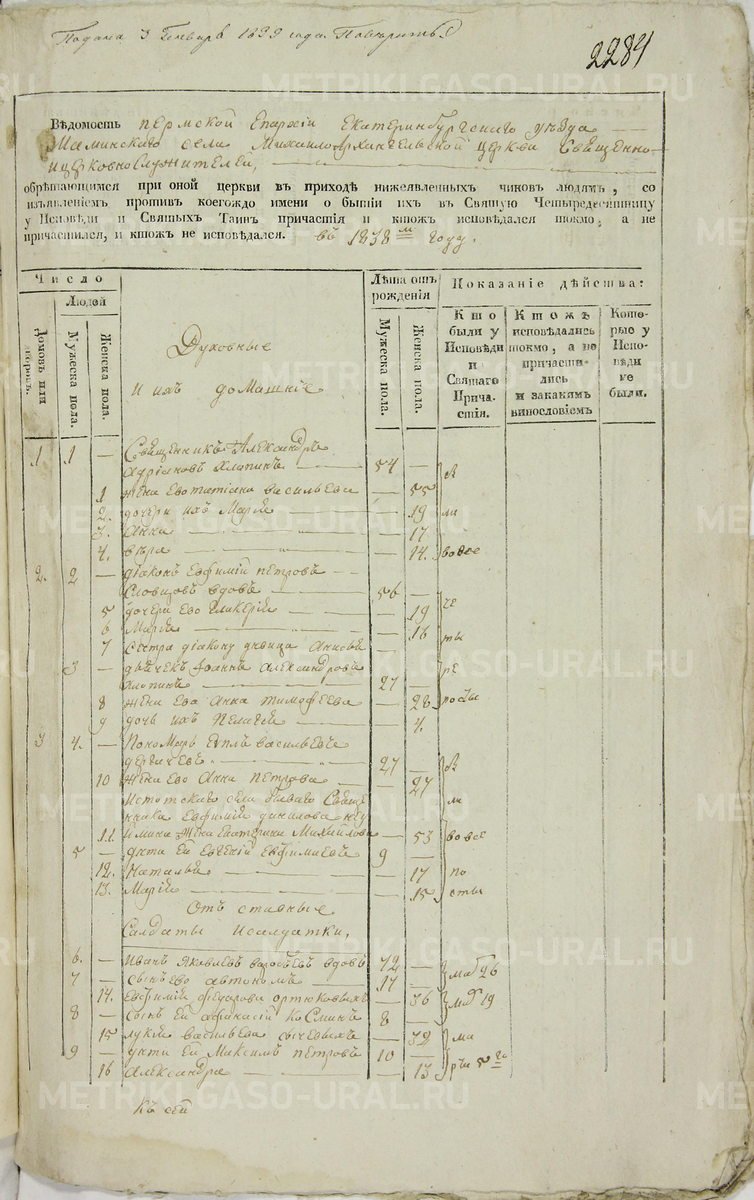 Подана 3 Генваря 1839 года. Повѣрить
2284
Вѣдомость пермской Епархіи Екатеринбургскаго уѣзда
Маминскаго села Михаилоархангельской церкви Священно-
ицерковнослужителей,
обрѣтающимся при оной церкви въ приходѣ нижеявленныхъ чиновъ людямъ, со
изъявленіемъ противъ коегождо имени о бытіи ихъ въ Святую Четыредесятницу
у Исповѣди и Святыхъ Таинъ причастія и ктожъ исповѣдался токмо, а не
причастился, и ктожъ не исповѣдался. въ 1838м году.
Число
Домовъ или
Людей
Мужеска пола.
Женска пола.
Духовные
и ихъ домашніе
Лѣта отъ
рожденія
Мужеска пола.
Женска пола.
Показаніе дѣйства:
Кто
были у
Исповѣди
и
Святаго
Прича-
стія.
Ктожъ
исповѣдались
токмо, а не
причасти-
лись
и закакимъ
винословіемъ
Кото-
рые у
Испо-
вѣди
не
были.
1 1 — Священникъ Александръ
Адріановъ Хлопинъ — 54 —
1 жена Его Татіана васильева — 55
2. дочери ихъ Марія — 19
3. Анна — 17
4. вѣра — 14. вовсе
2. 2 — діаконъ Евфимій петровъ
Словцовъ вдовъ — 56 —
5 дочери Его Гликерія — 19
6 Марія — 16
7 сестра діакону дѣвица Анисья
3 — дьячекъ Іоаннъ Александровъ
Хлопинъ — 27 —
8 жена Ева Анна тимофеева — 28
9 дочь ихъ Пелагія — 4.
3 4. — Пономарь васильевъ
— 27 —
10 жена Ево Анна петрова — 27
села бываго Свяще
нника Евфимія данилова
11 жена Екатерина Михайлова — 53 вовсе
5 — дѣти Ей Евгеній Евфимьевъ 9 —
12. Наталья — 17 по
13. Марія — 15 сты
Отъ ставные
Салдаты и салдатки,
6. — Иванъ Яковлевъ вдовъ 72 —
7 — сынъ Ево автономъ 17 —
14. Евфимія федорова 36
8 — сынъ Ей афанасій 8 —
15 лукія васильева 39 ма
9 — дѣти Ей Максимъ петровъ 10 —
16 Александра — 13 рта 5го
Къ сей